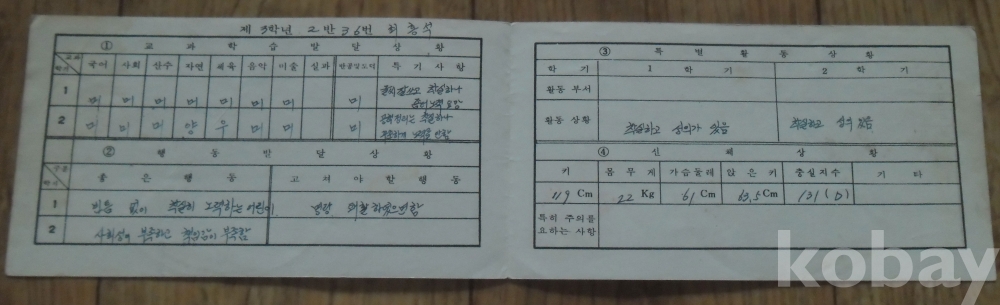 제 3학년 2반 36번 최 석
① 교과학습발달상황
교과 학기 국어 사회 산수 자연 체육 음악 미술 실과 반공및도덕 특기사항
1 미 미 미 미 미 미 미 미 착실하나
2 미 미 미 양 우 미 미 미 착실하나
② 행동발달상황
구분 학기 좋은행동 고쳐야할행동
1 없이 착실히 노력하는 어린이.
2 사회성이 부족하고 책임감이 부족함
③ 특별활동상황
학기 1학기 2학기
활동부서
활동상황 착실하고 성의가 있음 착실하고 있음
④ 신체상황
키 몸무게 가슴둘레 앉은키 충실지수 기타
119 Cm 22 Kg 61 Cm 63.5 Cm 131
특히 주의를
요하는 사항
kobay